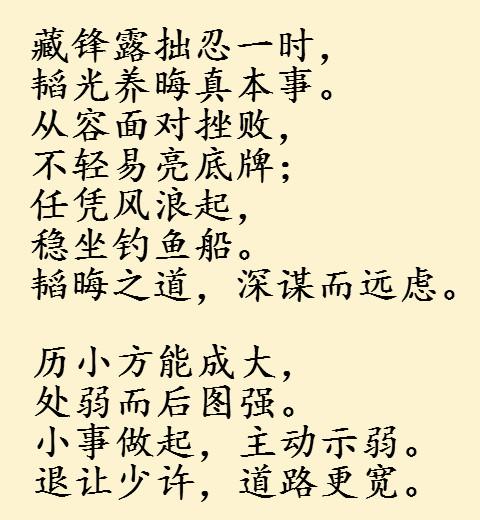 藏锋露拙忍一时，
韬光养晦真本事。
从容面对挫败，
不轻易亮底牌；
任凭风浪起，
稳坐钓鱼船。
韬晦之道，深谋而远虑。
历小方能成大，
处弱而后图强。
小事做起，主动示弱。
退让少许，道路更宽。